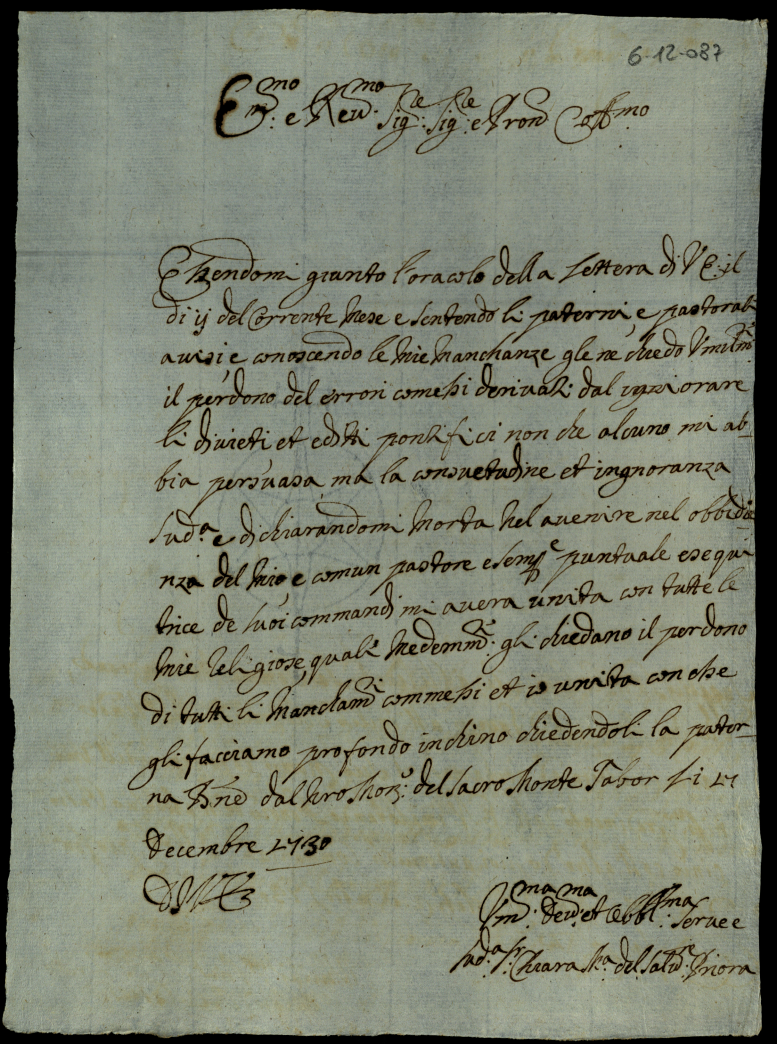 6-12-087
Em.mo e Reud.mo Sig.re Sig.re e Pron Coll.mo
Essendomi giunto l'oracolo della Lettera di V E: il
di ij del Corrente Mese e sentendo li paterni, e pastorali
auisi, e conoscendo le Mie Manchanze gle ne chiedo Vmilm.te
il perdono del errori comessi deriuati dal ingniorare
li diuieti et editti pontificij non che alcuno mi ab-
bia persuasa, ma la consuetudine et ingnoranza
Sud.a e dichiarandomi Morta nel auenire nel obbidie
nza del Mio, e comun pastore e semp.e puntuale esequi
trice de suoi commandi mi auera unita con tutte le
Mie Religiose, quali Medemm.te gli chiedano il perdono
di tutti li Mancham.ti commessi et io unita con esse
gli facciamo profondo inchino chiedendoli la pater-
na Bne dal Nro Mon.o del Sacro Monte Tabor Li 21
Decembre 1730
D V E
Vm.ma Deu.ma et Obbl.ma Serua e
Sud.a Sr. Chiara M.a del Salu.re Priora